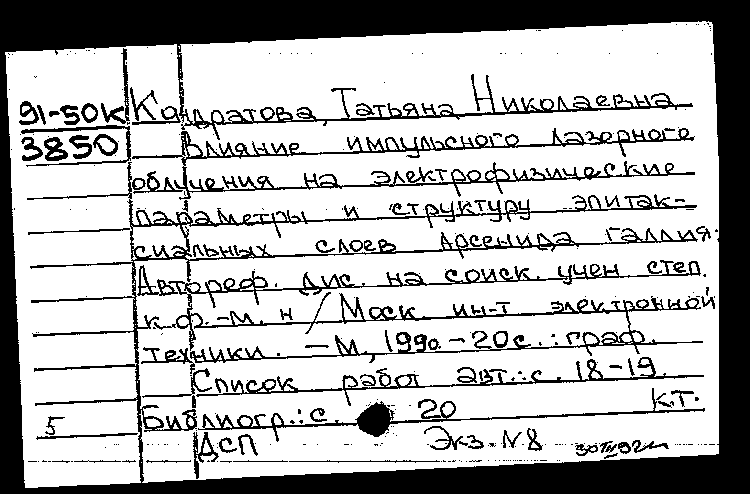 91-50к Кандратова, Татьяна Николаевна
3850 Влияние импульсного лазерного
облучения на электрофизические
параметры и структуру эпитак-
сиальных слоев арсенида галлия:
Автореф. дис. на соиск. учен степ.
к.ф.-м. н / Моск. ин-т электронной
техники. – М, 1990 – 20с. : граф.
Список работ авт.: с. 18-19.
5 Библиогр.: с. 20 к.т.
ДСП Экз. N8